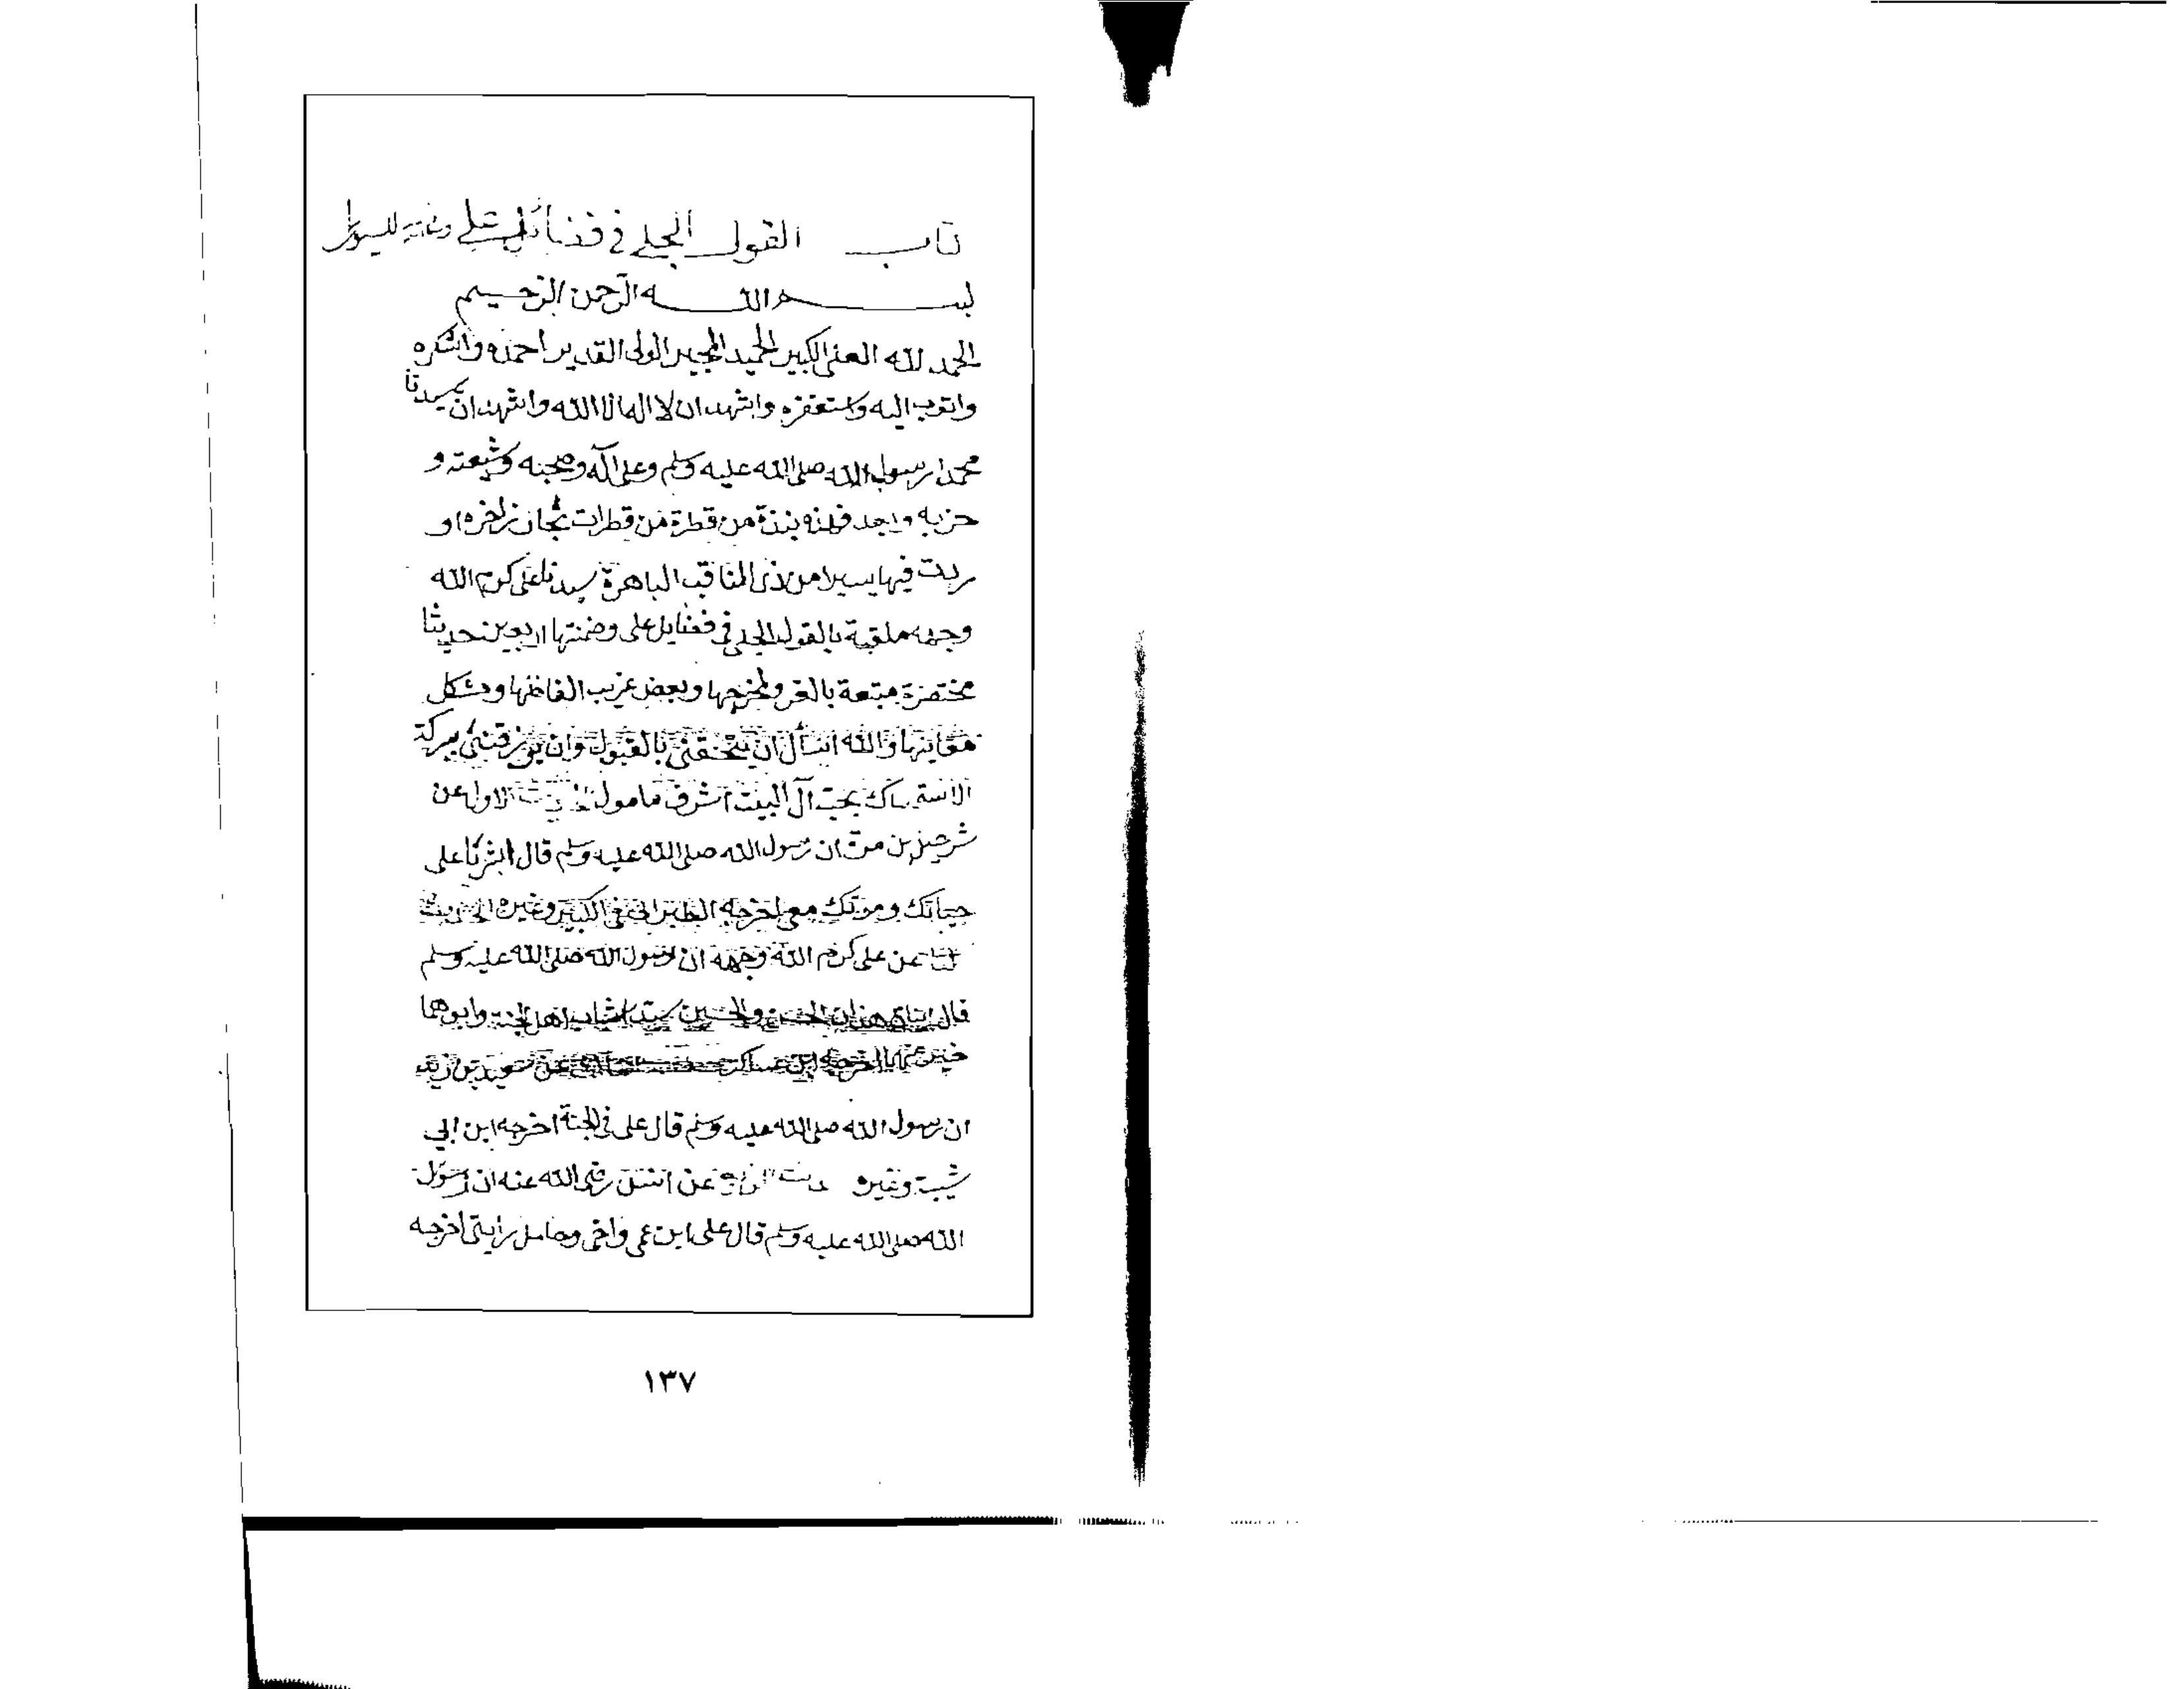 كتاب القول الجلي في فضائل علي للسيوطي
بسم الله الرحمن الرحيم
الحمد لله العلي الكبير الحميد المجيد الولى القدير احمده واشكره
واتوب اليه واستغفره واشهد ان لا اله الا الله واشهد ان سيدنا
محمدا رسول الله صلى الله عليه وسلم وعلى آله وصحبه وشيعته و
حزبه وبعد فهذه نبذة من قطرة من قطرات بحار زاخره او
ردت فيها يسيرا من ذى المناقب الباهرة سيدنا على كرم الله
وجهه ملقبة بالقول الجلي في فضايل على وضمنتها اربعين حديثا
مختصرة متبعة بالعزو لمخرجها وبعض غريب الفاظها ومشكل
معاينها والله اسأل ان يتحفنى بالقبول وان يرزقنى ببركة
الاستمساك بحب آل البيت اشرف مامول الاول عن
شرحبيل بن مرة ان رسول الله صلى الله عليه وسلم قال ابشر يا على
حياتك وموتك معى اخرجه الطبرانى فى الكبير وغيره الحديث
عن على كرم الله وجهه ان رسول الله صلى الله عليه وسلم
قال ابناى هذان الحسن والحسين سيدا شباب اهل الجنة وابوهما
خير منهما اخرجه ابن عساكر عن سعيد بن زيد
ان رسول الله صلى الله عليه وسلم قال على فى الجنة اخرجه ابن ابي
شيبة وغيره عن انس رضى الله عنه ان رسول
الله صلى الله عليه وسلم قال على ابن عمي واخى وحامل رايتى اخرجه
١٣٧